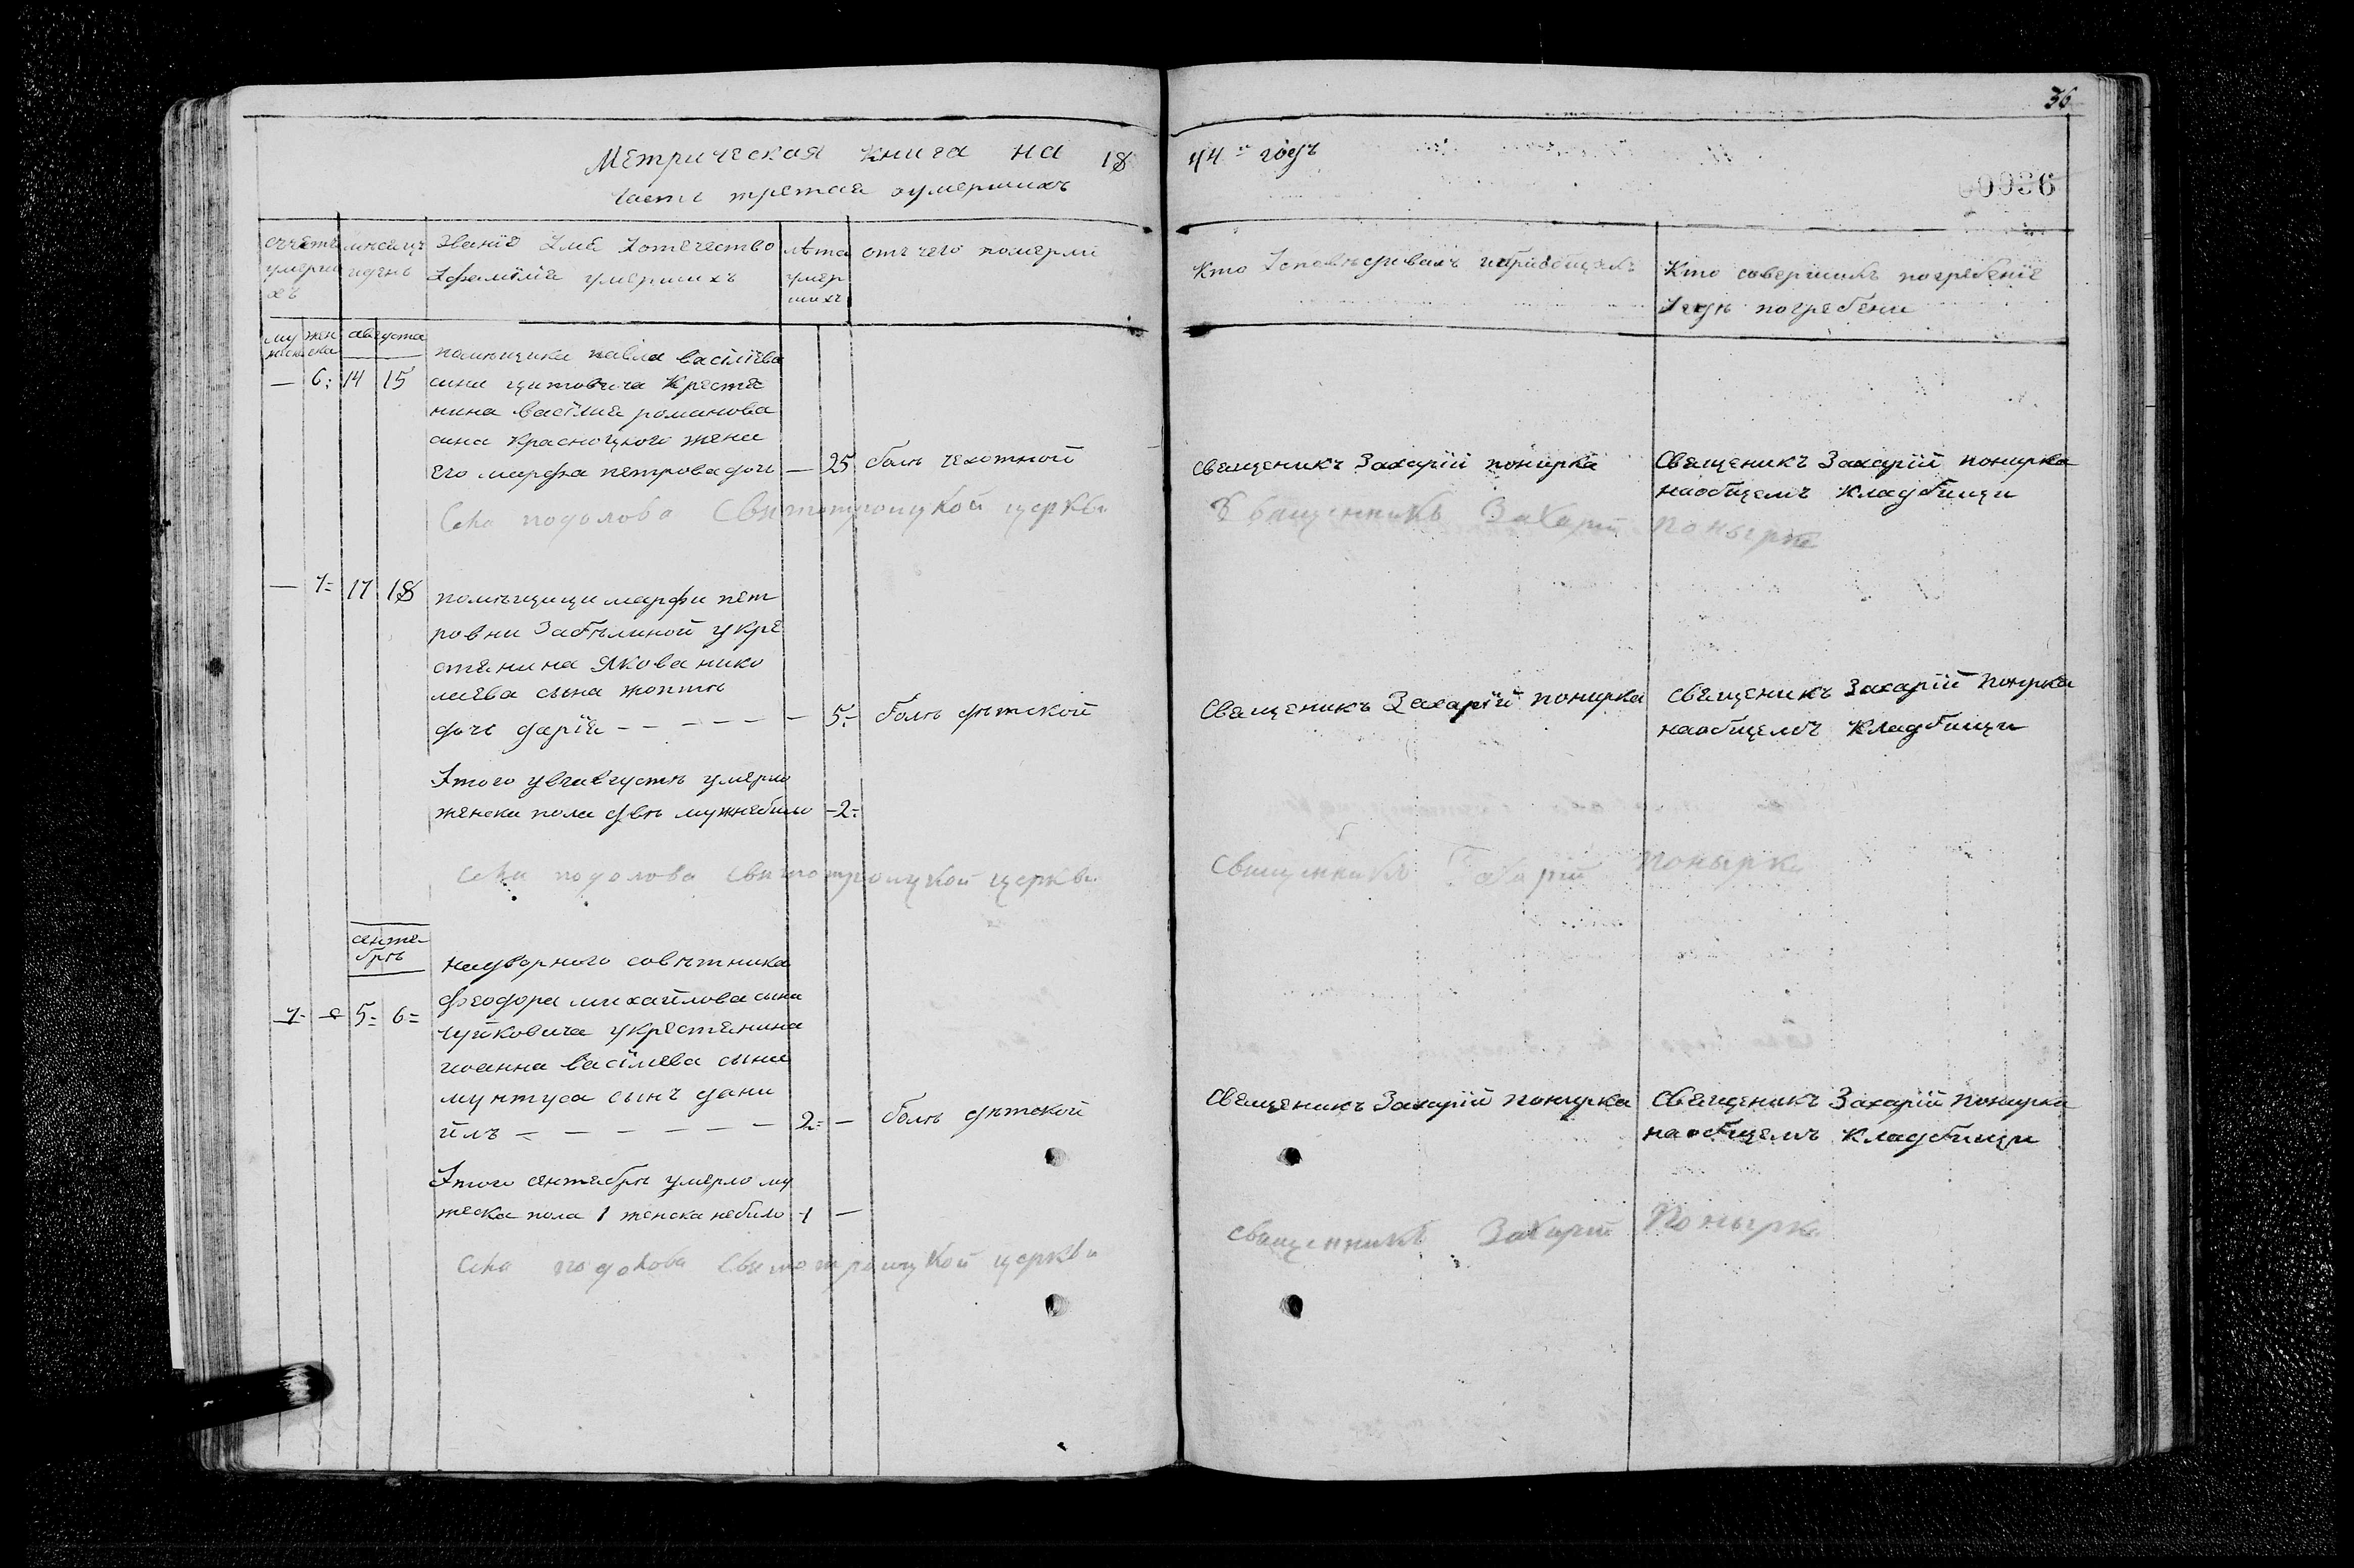 36
Метрическая книга на 18
44 го годъ
часть третая оумершихъ
00036
счетъ умерши хъ
мѣсяцъ идень
Званіе Имя Iотечество Iфамиліа умершихъ
лѣта умер шихъ
отъ чего померли
Кто Iсповѣдывалъ ипріобщалъ
Кто совершилъ погребеніе Iгдѣ погребени
му жеска
жен ска
августа
помѣщика павла василіева
— 6: 14 15 сина цитовича Крестя
нина василиа романова
сина красноцкого жена
его марфа петрова дочь — 25 болѣ чехотной
священикъ Захарій понирка
Священикъ Захарій понирка
наобщемъ кладбищи
Села подолова Святотроицкой церкви
Священникъ Захарій понырка
— 7= 17 18 помѣщици марфи пет
ровни Забѣлиной укре
стянина Якова нико
лаева сына жоптѣ
дочь дарія — — — — — — 5:- болѣ дѣтской
Священикъ Захарій понирка
священикъ Захарій понирка
наобщемъ кладбищи
Iтого увгавгустѣ умерло
женска пола двѣ мужнебило -2-
Села подолова Святотроицкой церкви
Священникъ Захарій Понырка
сентя брѣ
надворного совѣтника
феодора михаилова сина
1- — 5= 6= чуйковича укрестянина
иоанна василиева сына
мунтуса сынъ дани
илъ — — — — — — 2:= — болѣ дѣтской
Священикъ Захарій понирка
Священикъ Захарій понирка
наобщемъ кладбищи
Iтого сентябрѣ умерло му
жеска пола 1 женска небило -1 —
Священникъ Захарій Понырка
Села подолова Святотроицкой церкви